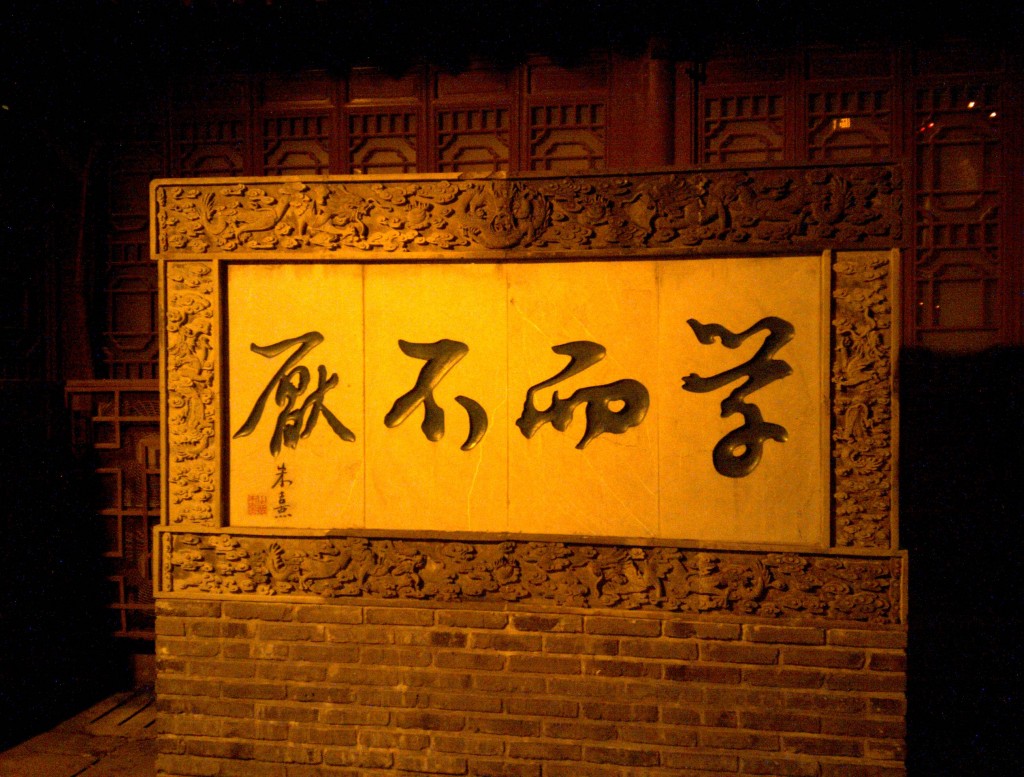 学而不厭
朱熹